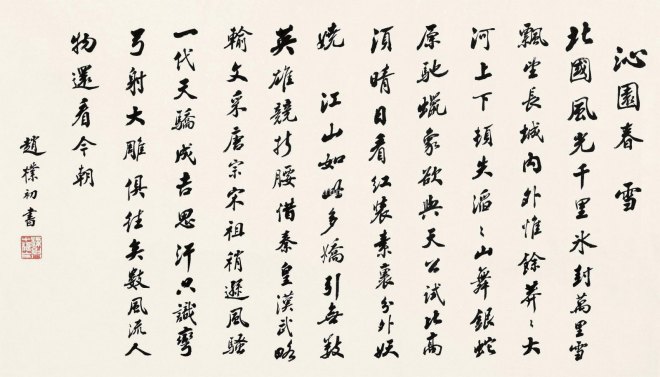 沁園春 雪
北國風光千里冰封萬里雪
飄望長城內外惟餘莽〻大
河上下頓失滔〻山舞銀蛇
原馳蠟象欲與天公試比高
須晴日看紅裝素裹分外妖
嬈 江山如此多嬌引無數
英雄競折腰借秦皇漢武略
輸文采唐宗宋祖稍遜風騷
一代天驕成吉思汗只識彎
弓射大雕俱往矣數風流人
物還看今朝
趙樸初書